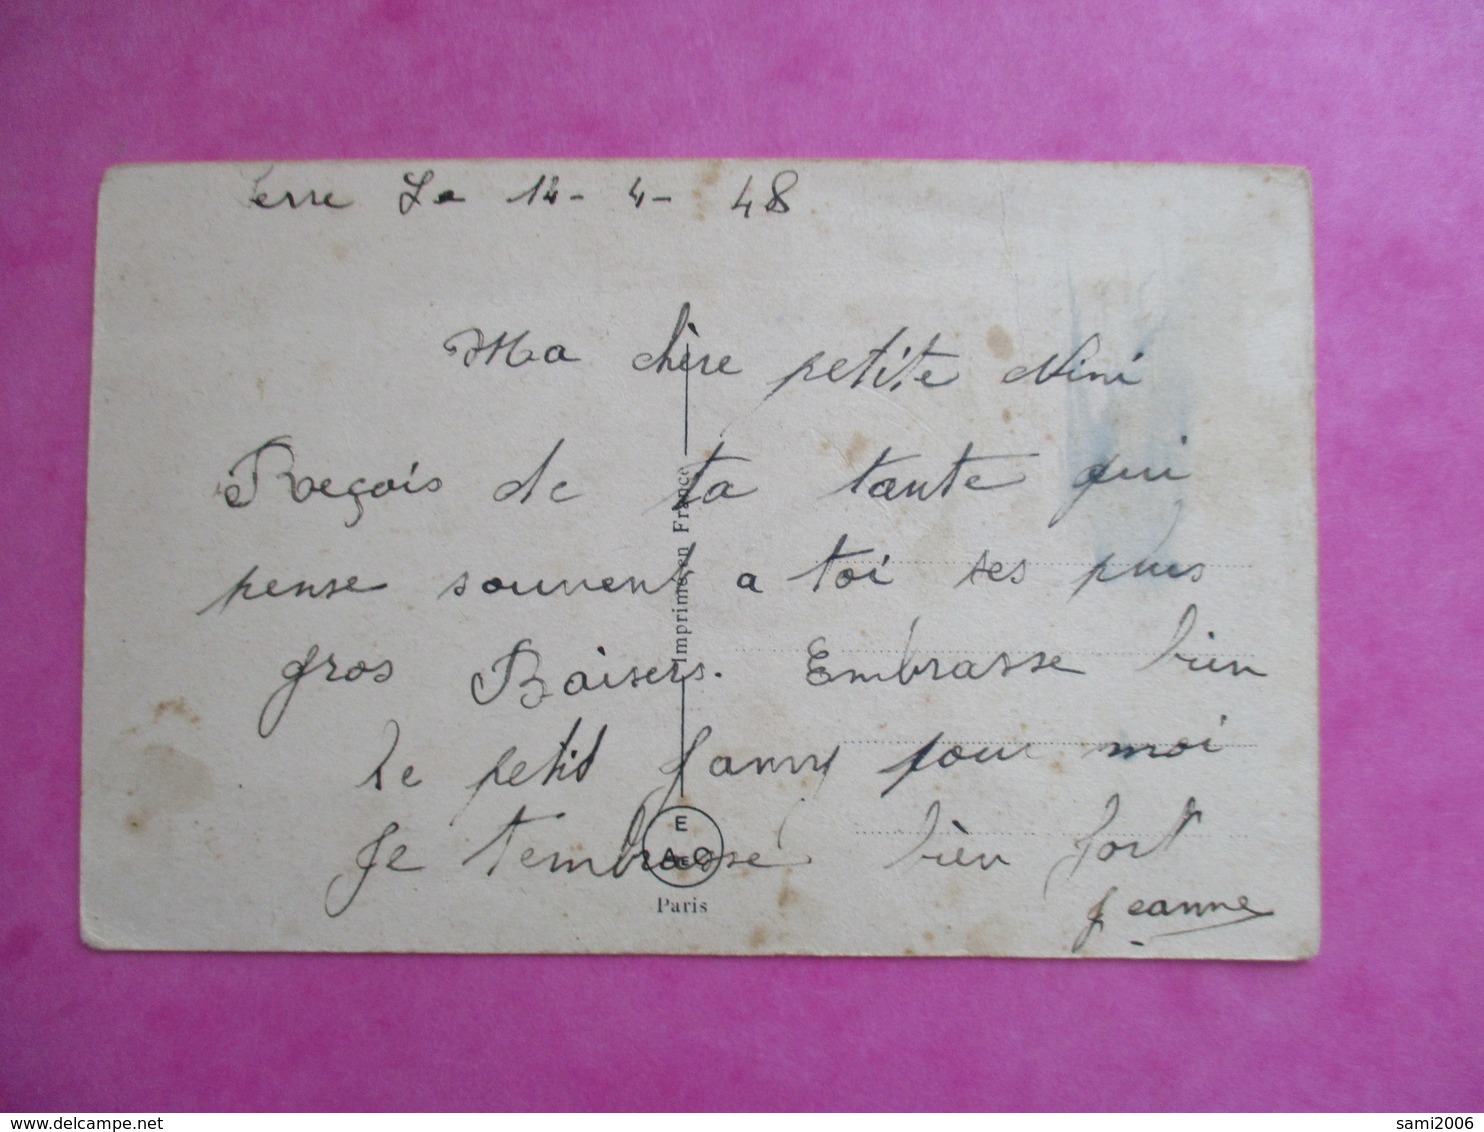 Le 14-4-48
Ma chère petite Nini
Reçois de ta tante qui
pense souvent a toi ses plus
gros Baisers. Embrasse bien
le petit Jamy pour moi
Je t'embrasse bien fort
Jeanne
Imprimé en France
E
A.C
Paris
delcampe.net
sami2006